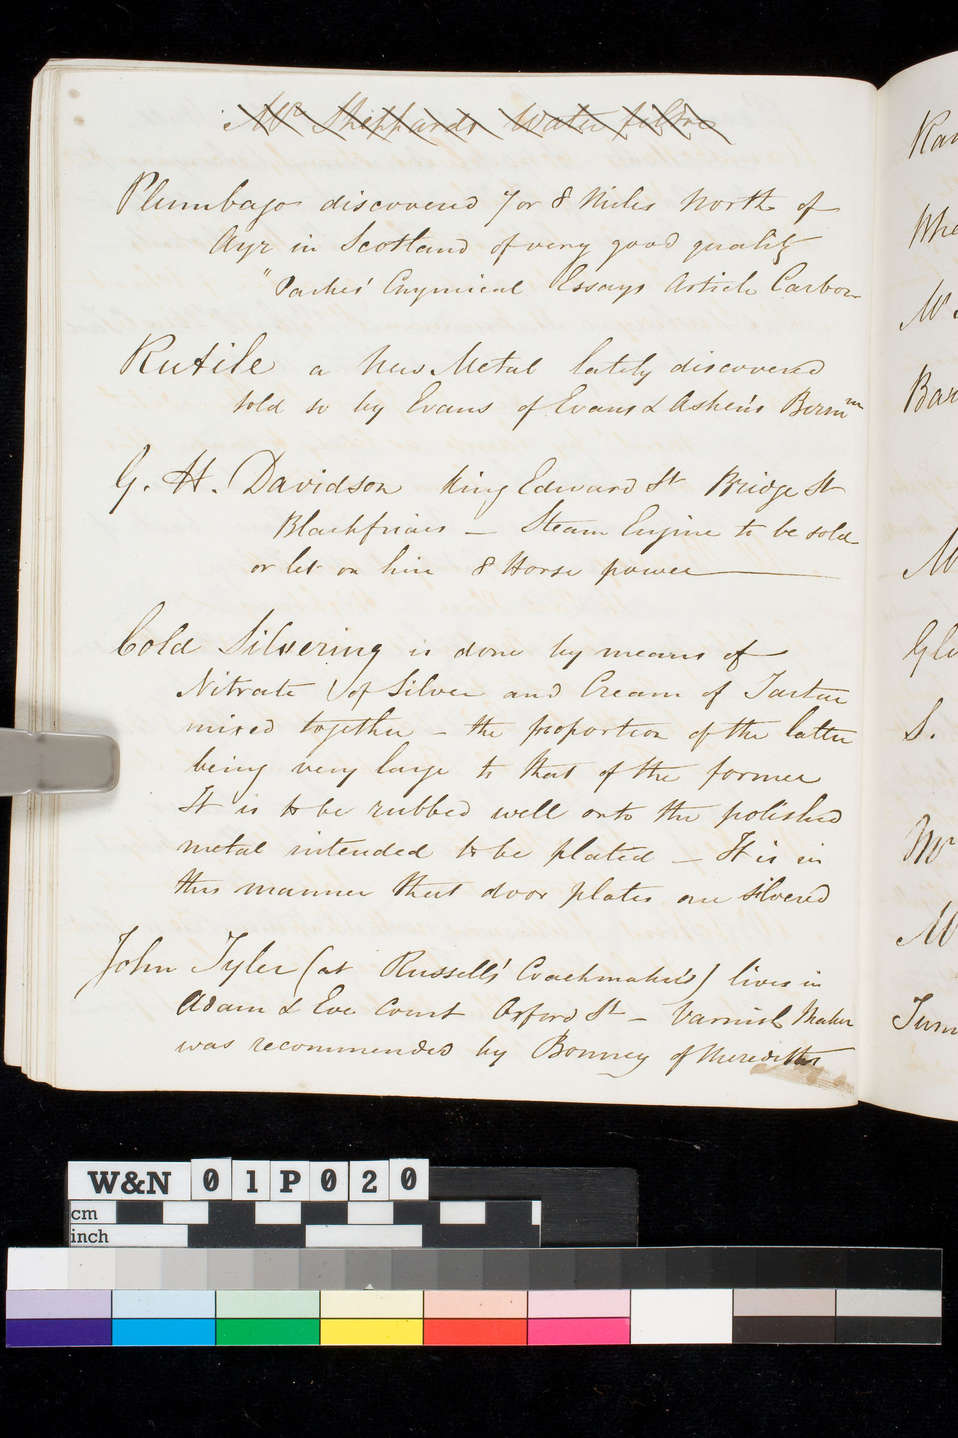 Mr Sheppards Water filtre
Plumbago discovered 7 or 8 Miles North of
Ayr in Scotland of very good quality
"Parkes' Chymical Essays Article Carbon
Rutile a New Metal lately discovered
sold so by Evans of Evans & Askens Birmm
G. H. Davidson King Edward St Bridge St
Blackfriars — Steam Engine to be sold
or let on hire 8 Horse power
Cold Silvering is done by means of
Nitrate of Silver and Cream of Tartar
mixed together – the proportion of the latter
being very large to that of the former
It is to be rubbed well onto the polished
metal intended to be plated – It is in
this manner that door plates are silvered
John Tyler (at Russells' Coachmakers) lives in
Adam & Eve Court Oxford St – Varnish Maker
was recommended by Bonney of Merediths
W&N 01P020
cm
inch